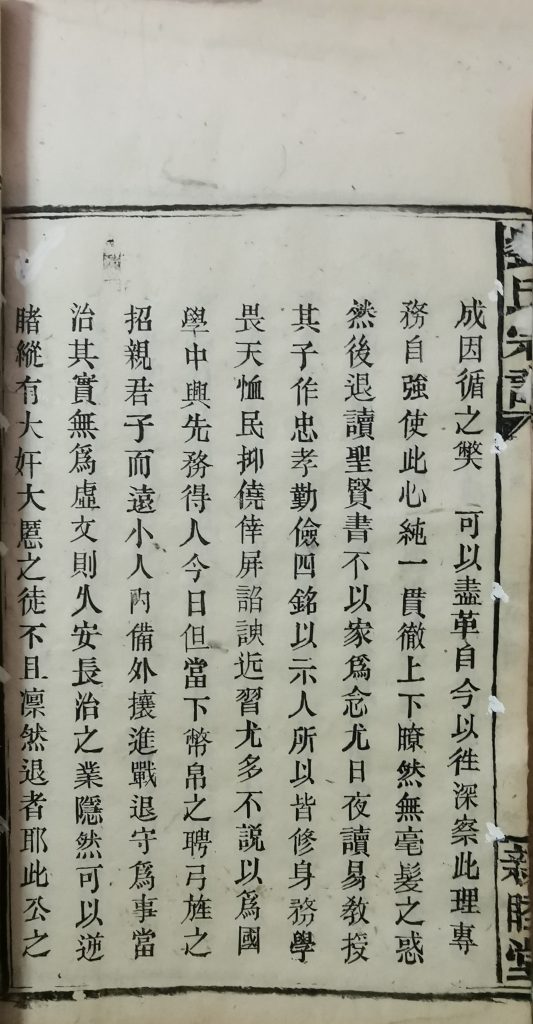 成因循之獘 可以盡革自今以徃深察此理專
務自強使此心純一貫徹上下瞭然無毫髮之惑
然後退讀聖賢書不以家爲念尤日夜讀易教授
其子作忠孝勤儉四銘以示人所以皆修身務學
畏天恤民抑僥倖屏諂諛近習尤多不説以爲國
學中興先務得人今日但當下幣帛之聘弓旌之
招親君子而遠小人內備外攘進戰退守爲事當
治其實無爲虛文則久安長治之業隱然可以逆
睹縱有大奸大慝之徒不且凛然退者耶此公之
氏宗譜
新睦堂